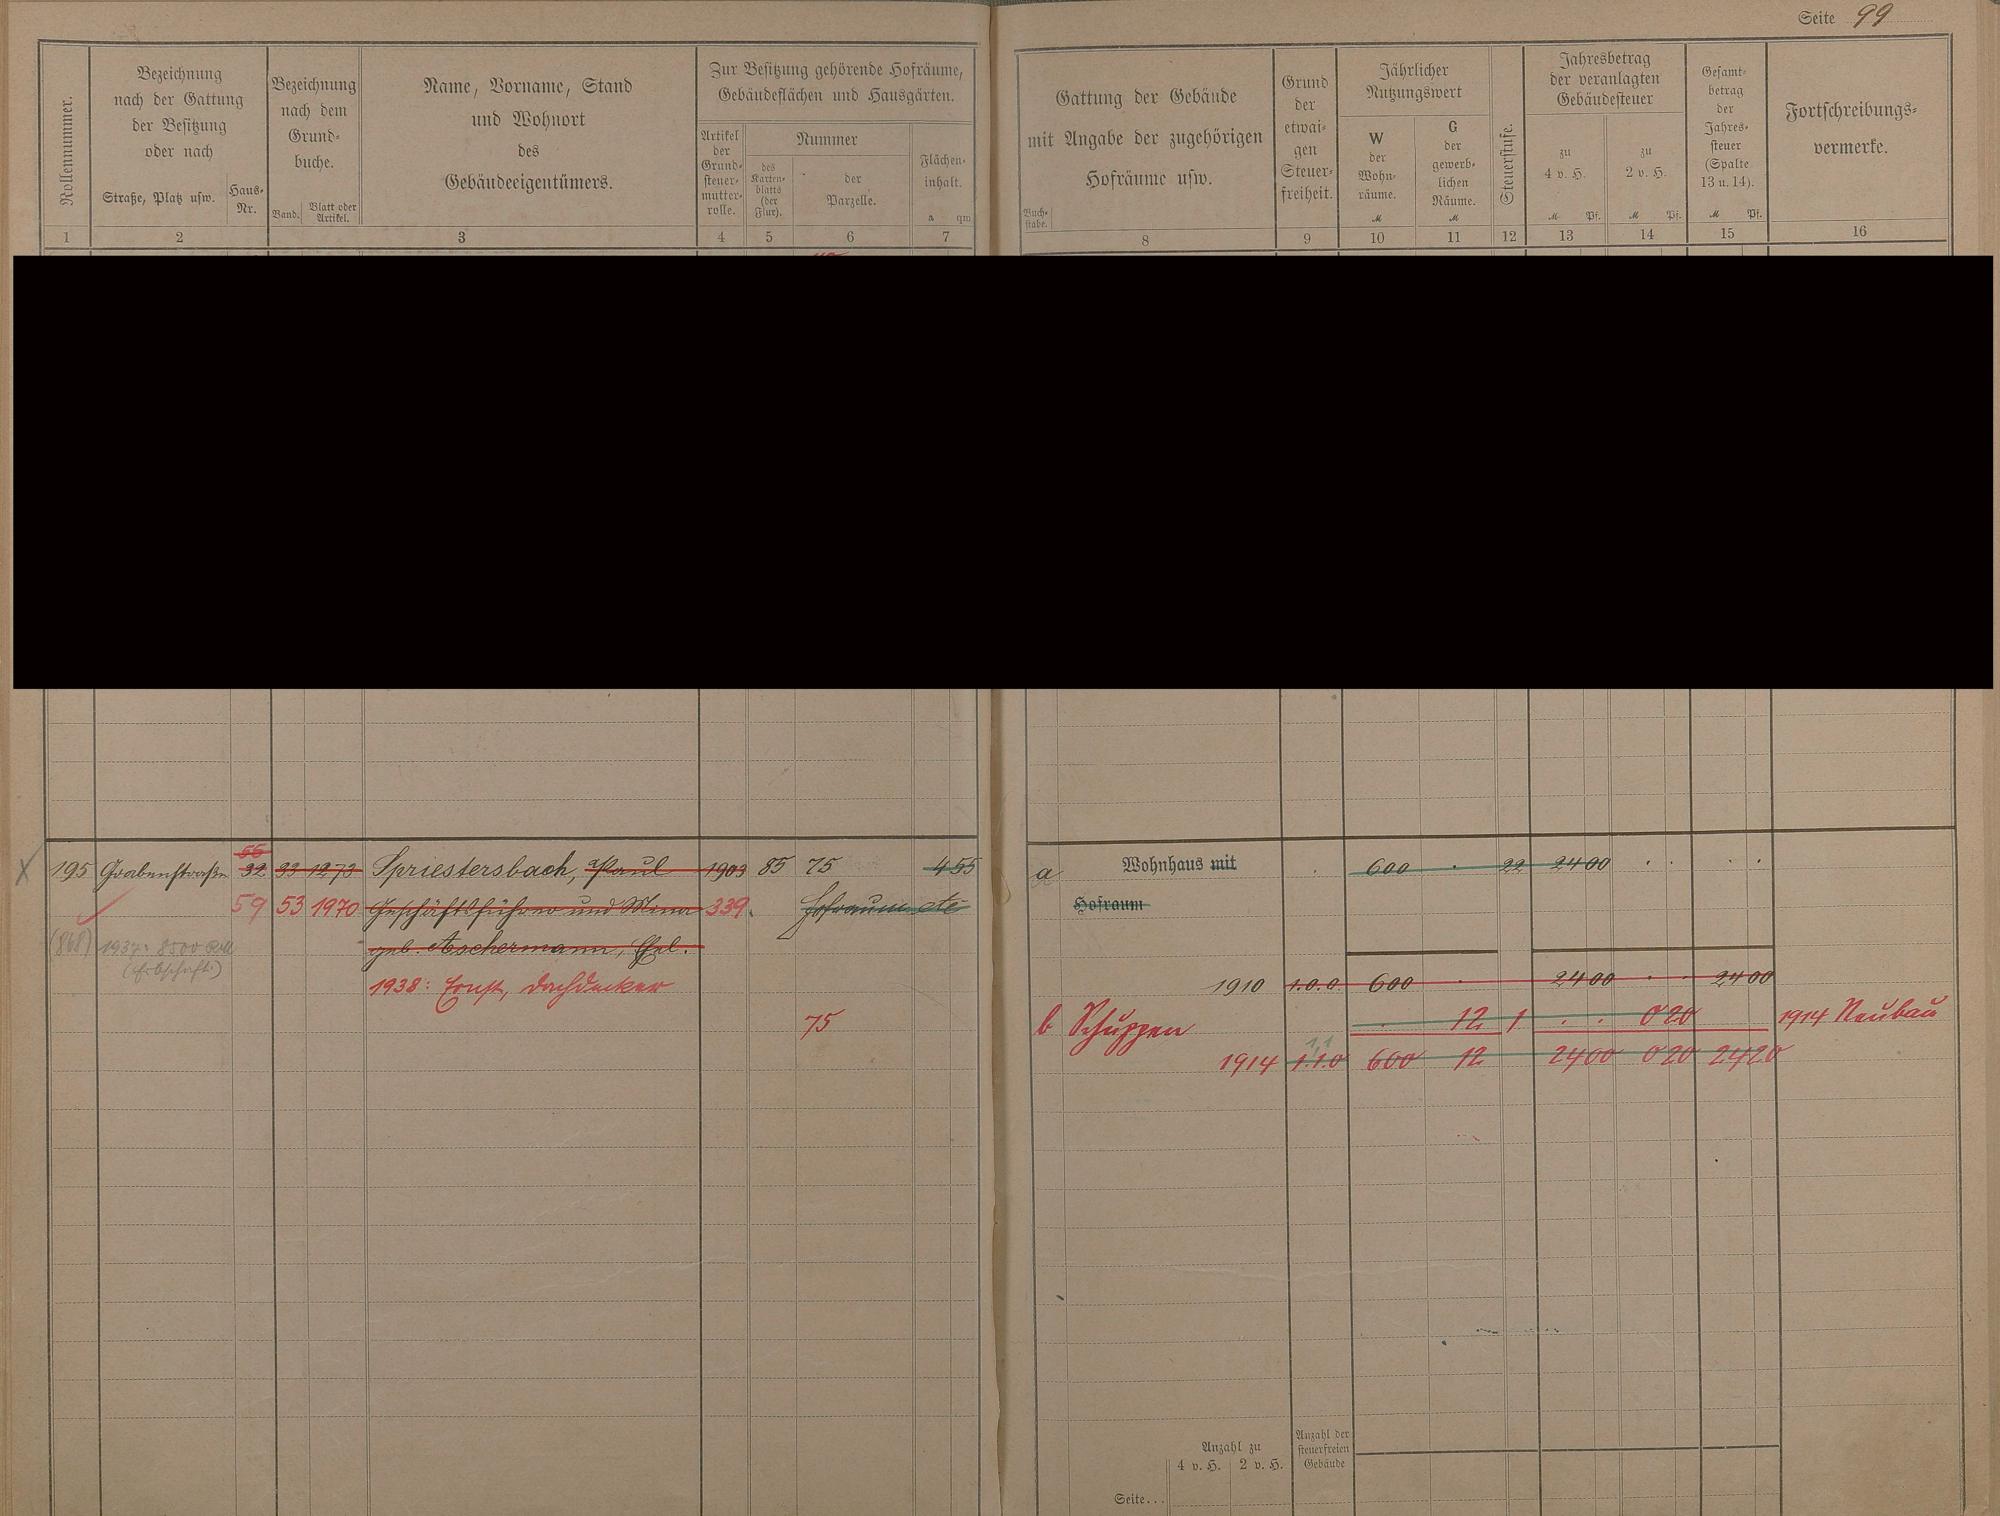 Seite 99
Rollennummer.
Bezeichnung
nach der Gattung
der Besitzung
oder nach
Straße, Platz usw.
Haus-
Nr.
Bezeichnung
nach dem
Grund-
buche.
Band.
Blatt oder
Artikel.
Name, Vorname, Stand
und Wohnort
des
Gebäudeeigentümers.
Zur Besitzung gehörende Hofräume,
Gebäudeflächen und Hausgärten.
Artikel
der
Grund-
steuer-
mutter-
rolle.
Nummer
des
Karten-
blatts
(der
Flur).
der
Parzelle.
Flächen-
inhalt.
a qm
1 2 3 4 5 6 7
Buch-
stabe.
Gattung der Gebäude
mit Angabe der zugehörigen
Hofräume usw.
Grund
der
etwai-
gen
Steuer-
freiheit.
Jährlicher
Nutzungswert
W
der
Wohn-
räume.
M
G
der
gewerb-
lichen
Räume.
M
Steuerstufe.
Jahresbetrag
der veranlagten
Gebäudesteuer
zu
4 v. H.
M Pf.
zu
2 v. H.
M Pf.
Gesamt-
betrag
der
Jahres-
steuer
(Spalte
13 u. 14).
M Pf.
Fortschreibungs-
vermerke.
8 9 10 11 12 13 14 15 16
55
195 Grabenstraße 32 33 1273 Spriestersbach, Paul 1903 85 75 4 55
59 53 1970 Geschäftsführer und Mina 339. Hofraum
(868) 1937: 8500 geb. Aschermann, Ehl.
(Erbschaft)
1938: Ernst, Dachdecker
75
a Wohnhaus mit 600 22 24 00
Hofraum
1910 1.0.0 600 24 00 24 00
b Schuppen 12 1 0 20 1914 Neubau
1,1
1914 1.1.0 600 12 24 00 0 20 24 20
Anzahl zu
4 v. H. 2 v. H.
Anzahl der
steuerfreien
Gebäude
Seite...